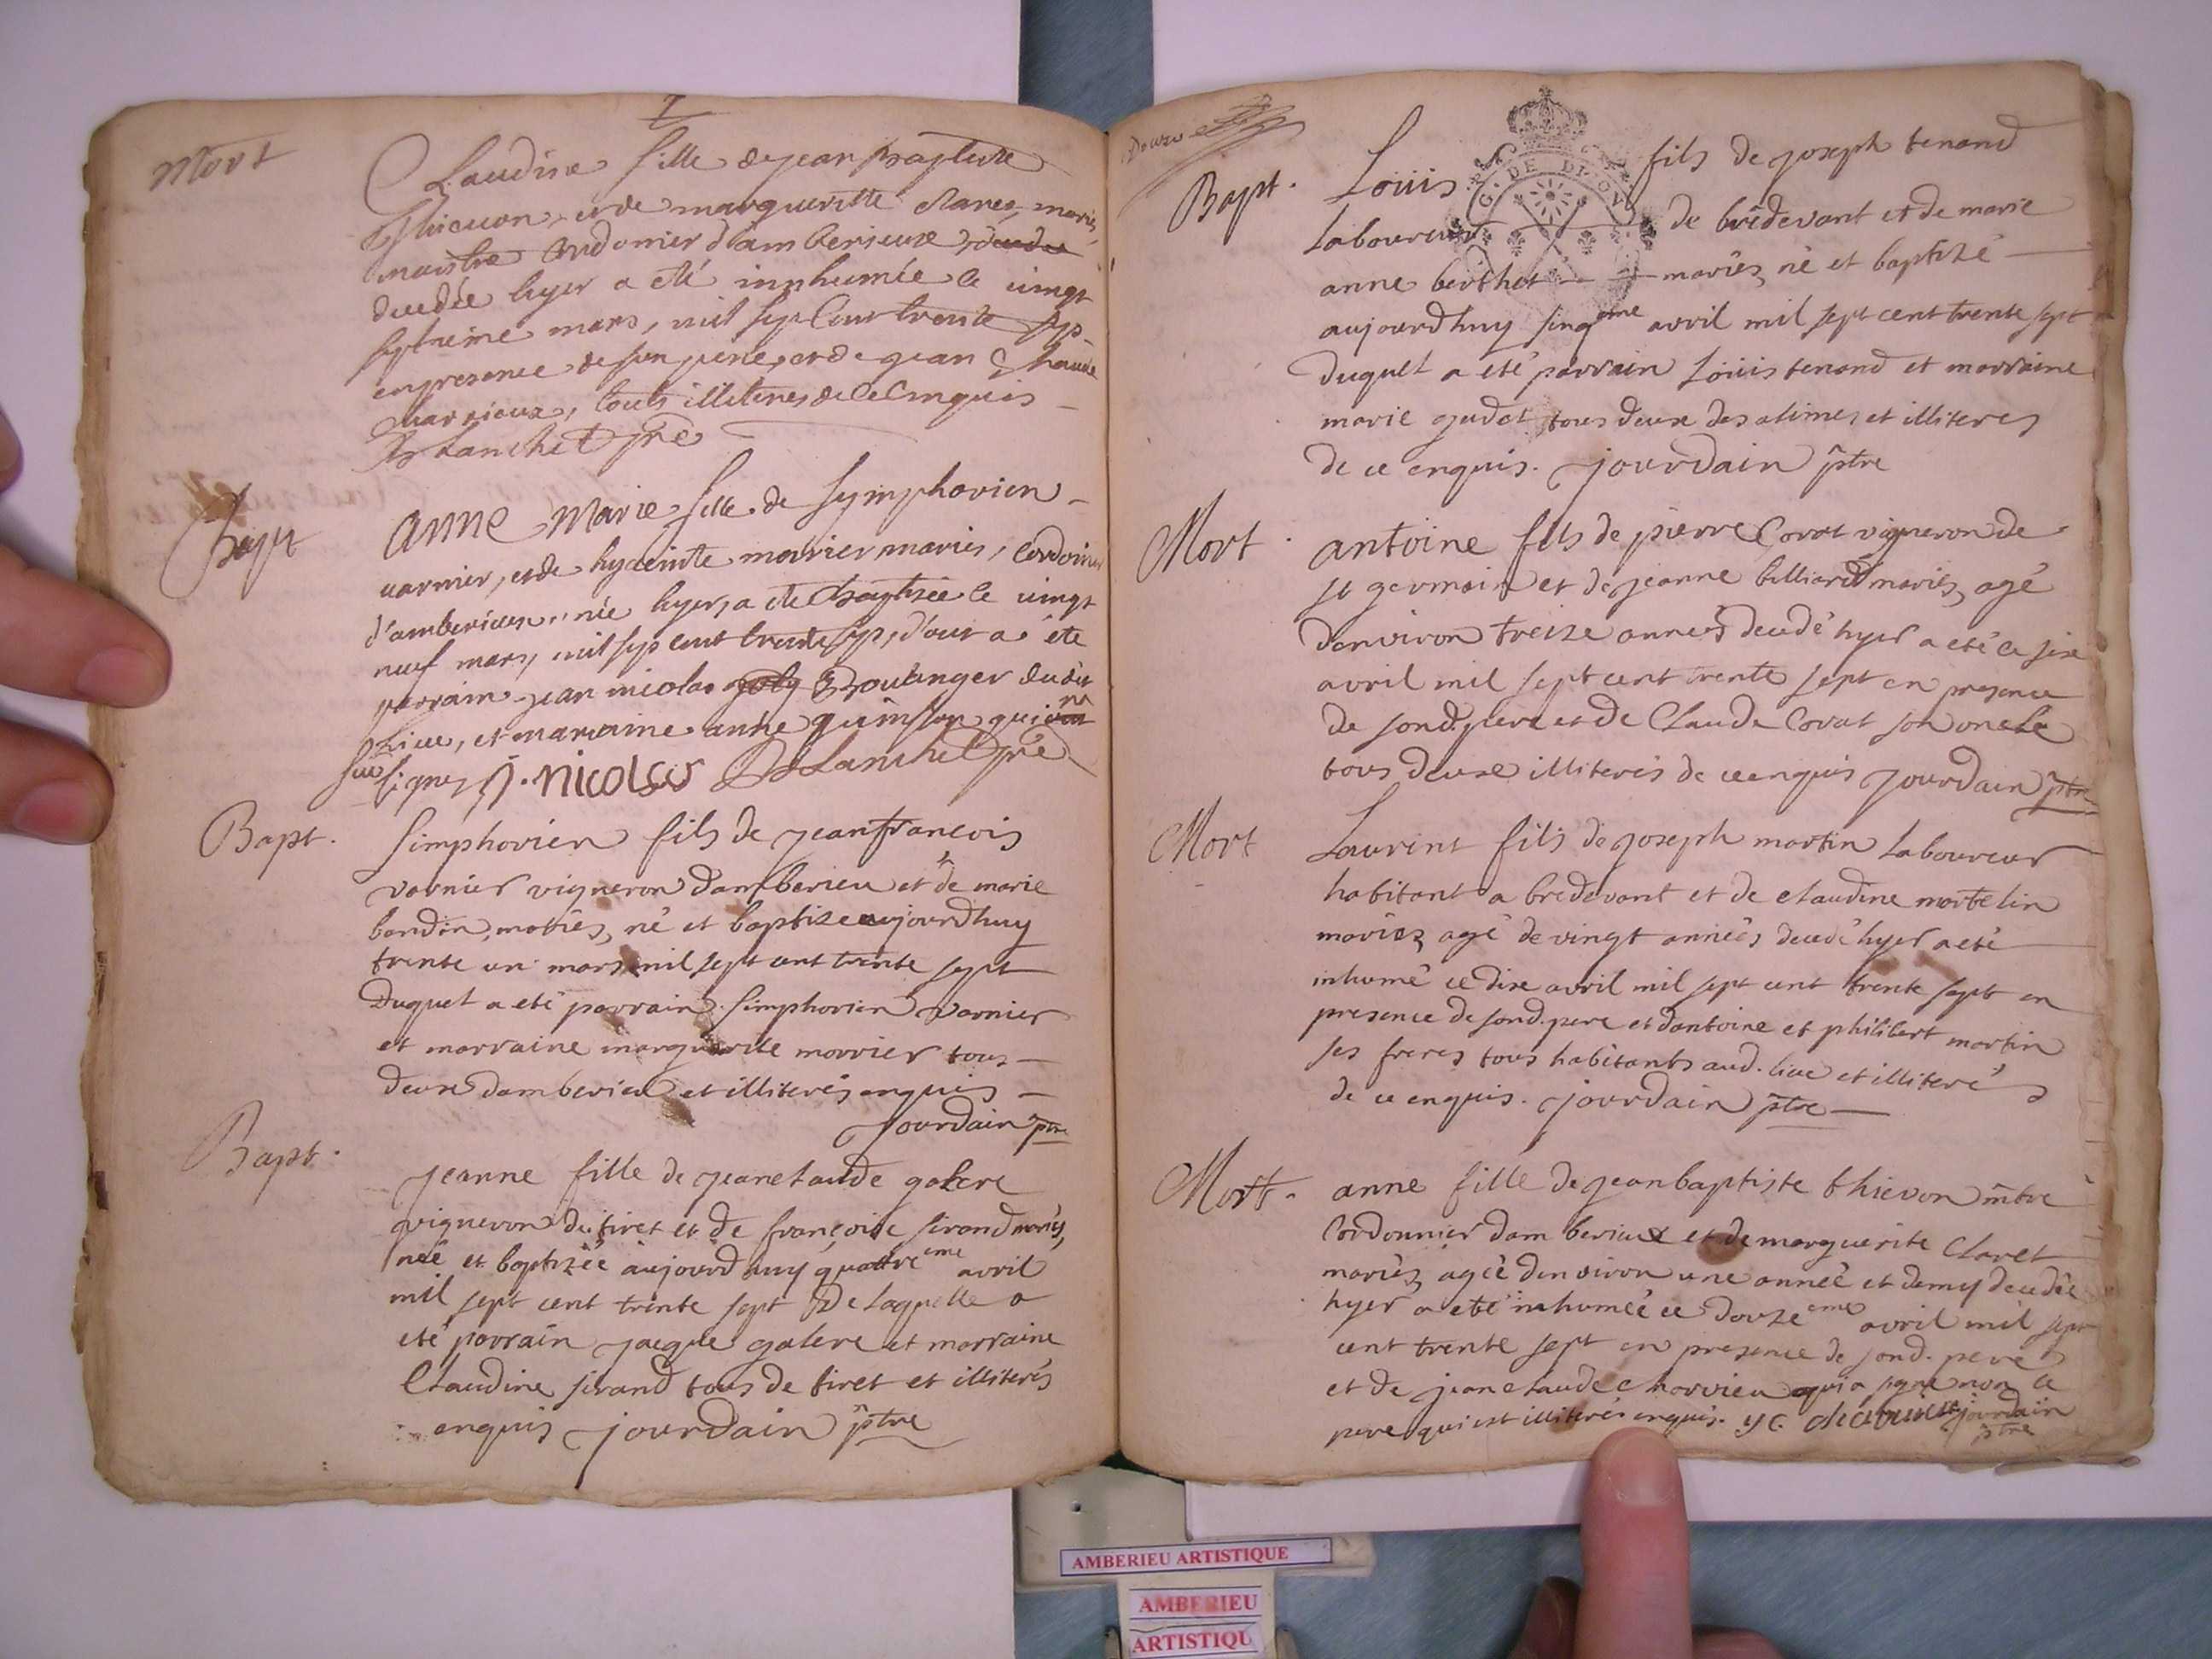 Mort
Claudine fille de jean baptiste
thievon, et de margueritte claret, mariés,
maistre cordonier d'amberieux, decedée
decedée hyer a eté innhumée le vingt
septieme mars, mil sept cent trente sep
en presence de son pere, et de jean Claude
charvieux, touts illiteres de ce enquis
Blanchet pre
Bapt
anne Marie fille de symphorien
varnier, et de hyacinte morrier mariés, cordonier
d'amberieux, née hyer, a eté baptisée le vingt
neuf mars, mil sept cent trente sep, d'out a été
parrain jean nicolas joly Boulanger dudit
lieu, et marraine anne quinson qui
signes j. nicolas Blanchet pre
Bapt.
simphorien fils de jean francois
varnier vigneron damberieu et de marie
bondin, mariés, né et baptise aujourdhuy
trente un mars mil sept cent trente sept
Duquel a eté parrain simphorien varnier
et marraine marguerite morrier tous
deux damberieu et illiterés enquis
jourdain ptre
Bapt.
jeanne fille de jeanclaude galere
vigneron du tiret et de françoise sirand mariés,
née et baptizée aujourdhuy quattreeme avril
mil sept cent trente sept De laquelle a
eté parrain jacque galere et marraine
Claudine sirand tous de tiret et illiterés
enquis jourdain ptre
Douze
G. DE DIJON
Bapt.
Loüis fils de joseph tenand
Laboureur de brédevant et de marie
anne berthet mariés, né et baptizé
aujourdhuy sinqeme avril mil sept cent trente sept
Duquel a eté parrain Loüis tenand et marraine
marie gudet tous deux des alimes et illiteres
de ce enquis. jourdain ptre
Mort
antoine fils de pierre Corat vigneron de
st germain et de jeanne billiard mariés, agé
denviron treize années decedé hyer a eté ce sixe
avril mil sept cent trente sept en presence
de sond. pere et de Claude Corat son oncle
tous deux illiterés de ce enquis jourdain ptre
Mort
Laurent fils de joseph martin laboureur
habitant a bredevant et de claudine martelin
mariés, agé de vingt années decedé hyer a eté
inhumé ce dixe avril mil sept cent trente sept en
presence de sond. pere et dantoine et philibert martin
ses freres tous habitants aud. lieu et illiterés
de ce enquis. jourdain ptre
Mort.
anne fille de jeanbaptiste thievon mtre
Cordonnier damberieux et de marguerite Claret
mariés, agée denviron une année et demy decedée
hyer a eté inhumée ce douzeeme avril mil sept
cent trente sept en presence de sond. pere
et de jeanclaude charvieu qui a signe non le
pere qui est illiterés enquis. jc. charvieu jourdain
ptre
AMBERIEU ARTISTIQUE
AMBERIEU
ARTISTIQU